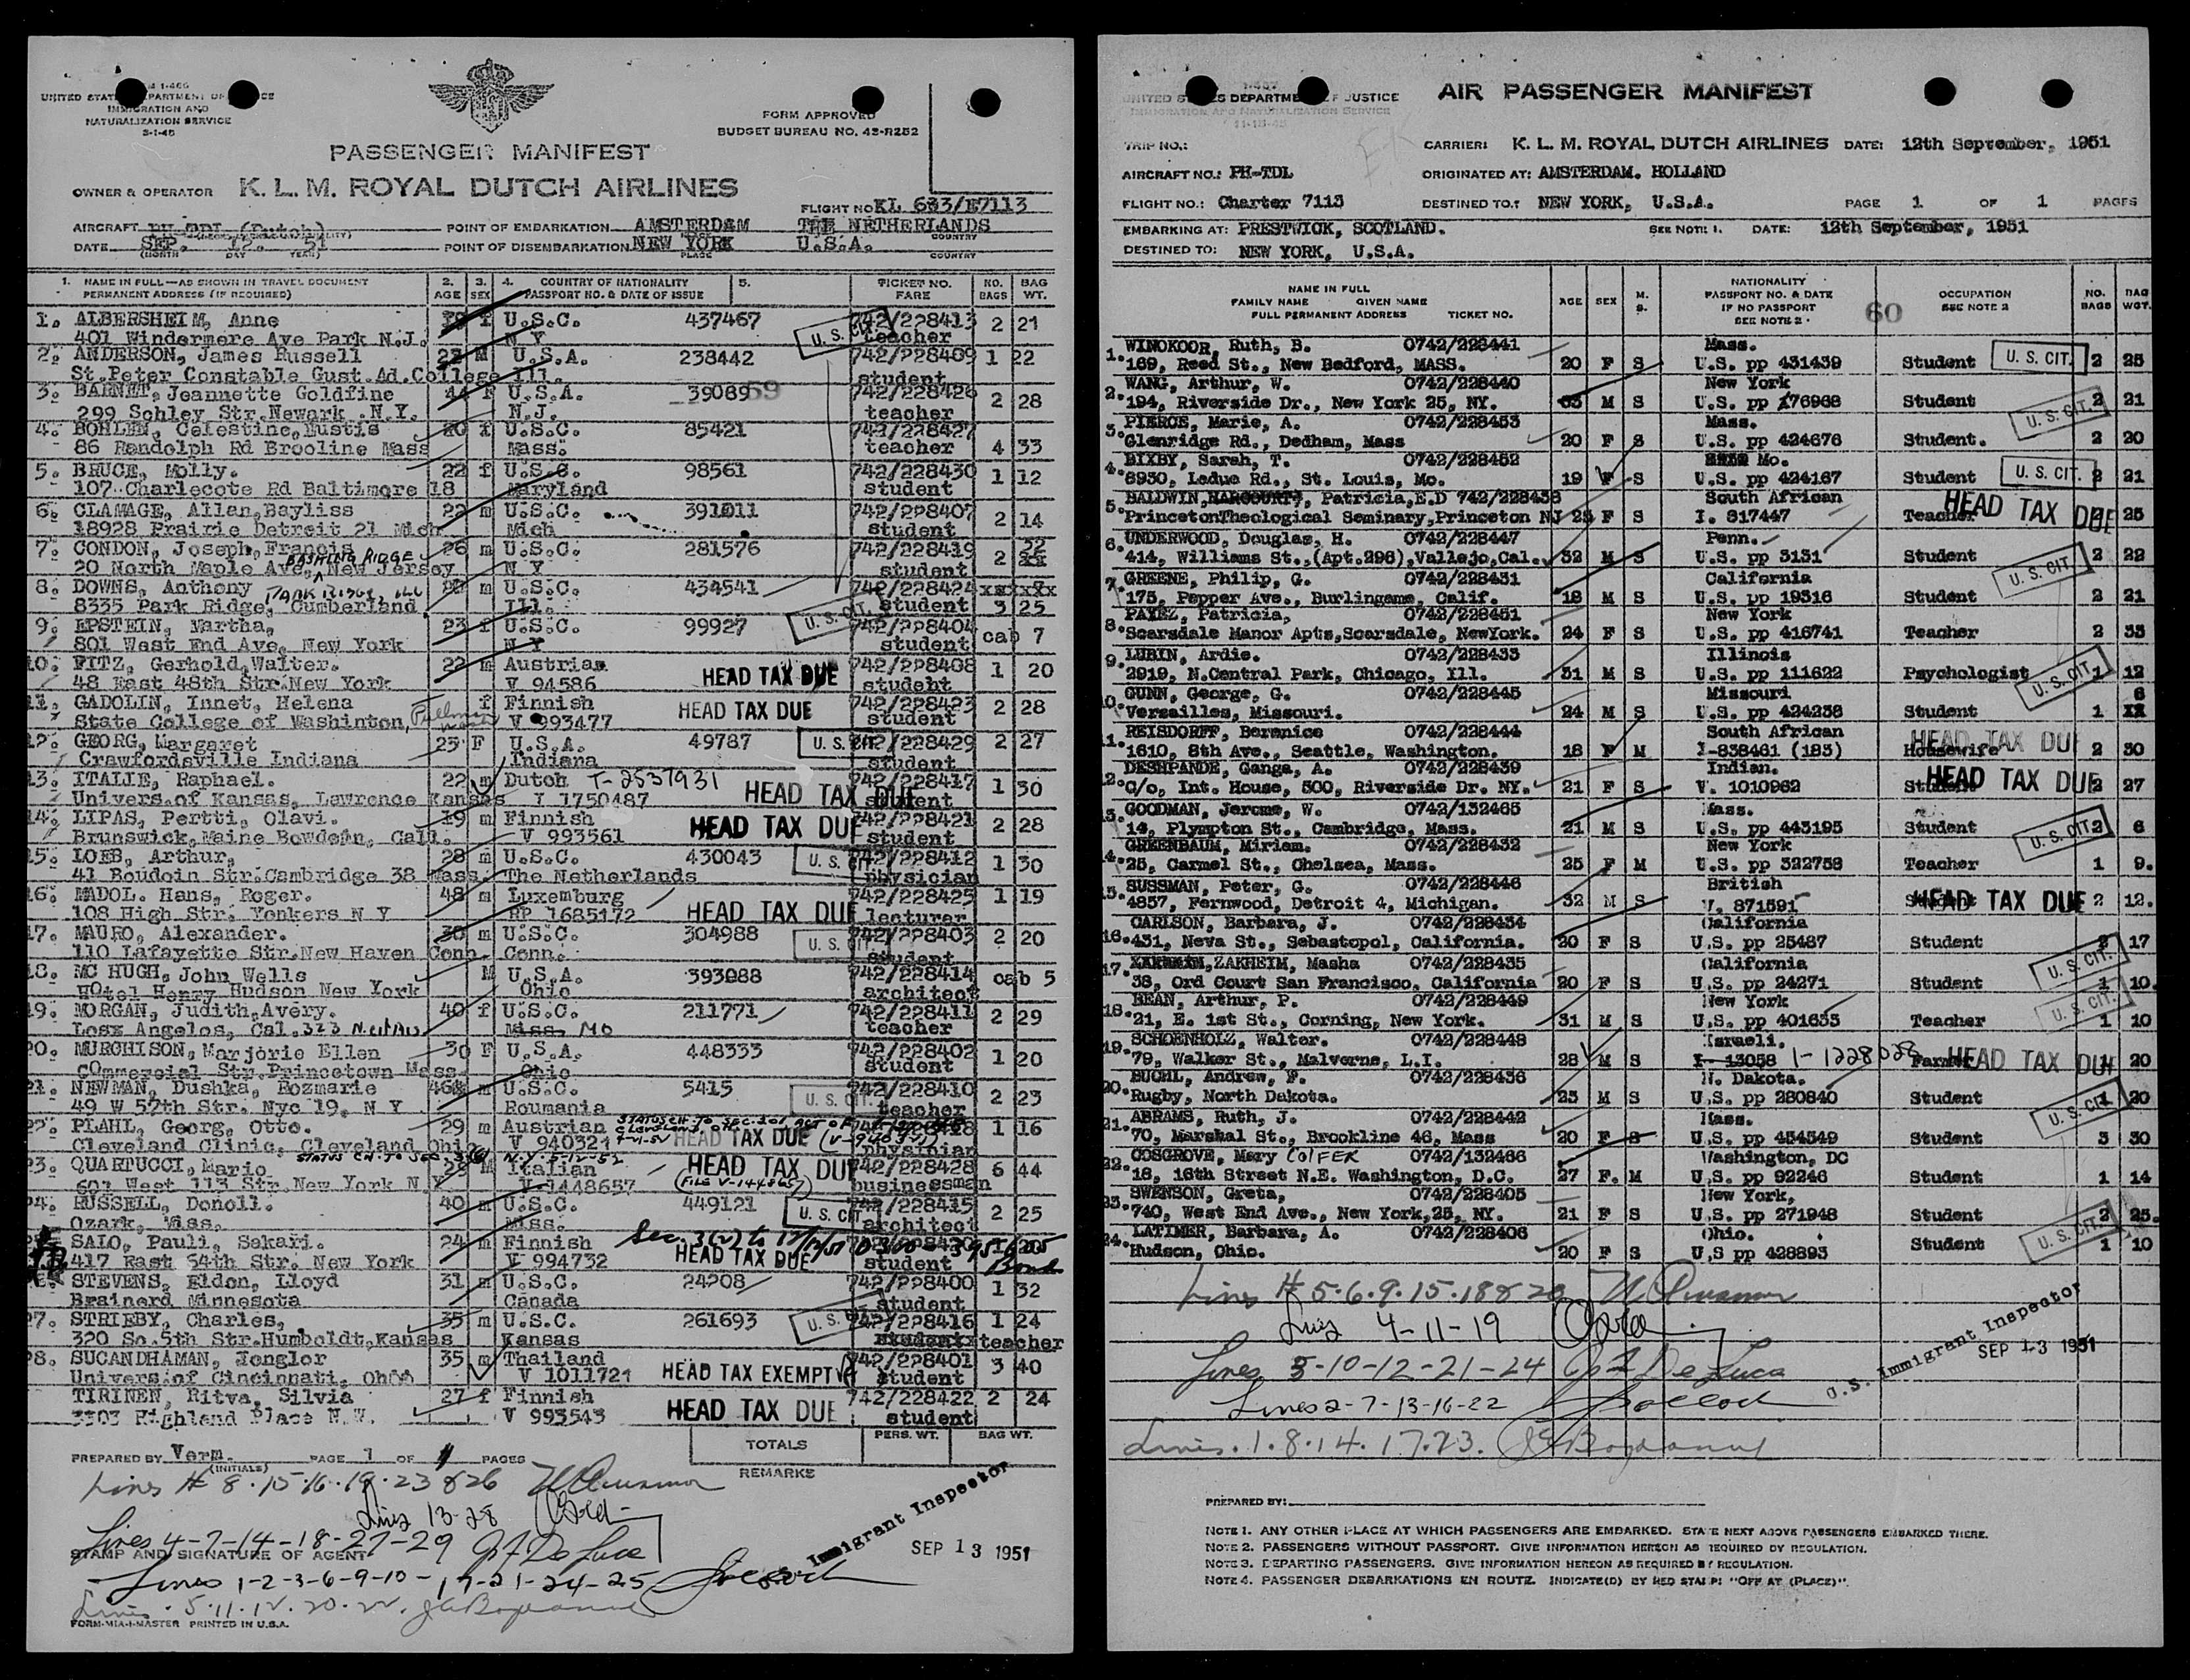 UNITED STATES DEPARTMENT OF JUSTICE
IMMIGRATION AND
NATURALIZATION SERVICE
FORM APPROVED
BUDGET BUREAU NO. 43-R252
PASSENGER MANIFEST
OWNER & OPERATOR K. L. M. ROYAL DUTCH AIRLINES
FLIGHT NO KL 633/E7113
AIRCRAFT PH TDL (Dutch) POINT OF EMBARKATION AMSTERDAM THE NETHERLANDS
DATE SEP. 12. 51 POINT OF DISEMBARKATION NEW YORK U.S.A.
(MONTH DAY YEAR) PLACE COUNTRY
1. NAME IN FULL—AS SHOWN IN TRAVEL DOCUMENT 2. 3. 4. COUNTRY OF NATIONALITY 5. TICKET NO. NO. BAG
PERMANENT ADDRESS (IF REQUIRED) AGE SEX PASSPORT NO. & DATE OF ISSUE FARE BAGS WT.
1. ALBERSHEIM, Anne f U.S.C. 437467 742/228413 2 21
401 Windermere Ave Park N.J. N Y teacher
2. ANDERSON, James Russell 22 M U.S.A. 238442 742/228409 1 22
St.Peter Constable Gust.Ad.College Ill. student
3. BARNET, Jeannette Goldfine 44 F U.S.A. 39089 59 742/228426 2 28
299 Schley Str.Newark .N.Y. N.J. teacher
4. BOHLEN, Celestine,Eustis 20 f U.S.C. 85421 742/228427
86 Randolph Rd Brooline Mass Mass. teacher 4 33
5. BRUCE, Molly. 22 f U.S.C. 98561 742/228430 1 12
107 Charlecote Rd Baltimore 18 Maryland student
6. CLAMAGE, Allan,Bayliss 22 m U.S.C. 391011 742/228407 2 14
18928 Prairie Detroit 21 Mich Mich student
7. CONDON, Joseph,Francis 26 m U.S.C. 281576 742/228419 2 22
20 North Maple Ave, BASKING RIDGE New Jersey N Y student
8. DOWNS, Anthony PARK RIDGE, ILL 20 m U.S.C. 434541 742/228424
8335 Park Ridge, Cumberland. Ill. student 3 25
9. EPSTEIN, Martha, 23 f U.S.C. 99927 U.S. CIT. 742/228404 cab 7
801 West End Ave, New York N Y student
10. FITZ, Gerhold,Walter. 22 m Austrian HEAD TAX DUE 742/228408 1 20
48 East 48th Str.New York V 94586 student
11. GADOLIN, Innet, Helena f Finnish HEAD TAX DUE 742/228423 2 28
State College of Washinton, Pullman V 993477 student
12. GEORG, Margaret 23 F U.S.A. 49787 U. S. CIT 742/228429 2 27
Crawfordsville Indiana Indiana student
13. ITALIE, Raphael. 22 m Dutch T-2537931 HEAD TAX DUE 742/228417 1 30
Univers.of Kansas, Lawrence Kansas I 1750487 student
14. LIPAS, Pertti, Olavi. 19 m Finnish HEAD TAX DUE 742/228421 2 28
Brunswick,Maine Bowdoin, Call. V 993561 student
15. LOEB, Arthur, 28 m U.S.C. 430043 U. S. CIT 742/228412 1 30
41 Boudoin Str.Cambridge 38 Mass. The Netherlands physician
16. MADOL. Hans, Roger. 48 m Luxemburg 742/228425 1 19
108 High Str. Yonkers N Y RP 1685172 HEAD TAX DUE lecturer
17. MAURO, Alexander. 30 m U.S.C. 304988 U. S. CIT 742/228403 2 20
110 Lafayette Str.New Haven Conn. Conn. student
18. MC HUGH, John Wells M U.S.A. 393088 742/228414 cab 5
HOtel Henry Hudson New York Ohio architect
19. MORGAN, Judith,Avery. 40 f U.S.C. 211771 742/228411 2 29
Losx Angelos, Cal. Miss MO teacher
20. MURCHISON, Marjorie Ellen 30 F U.S.A. 448333 742/228402 1 20
COmmercial Str.Princetown Mass Ohio student
21. NEWMAN, Dushka, Rozmarie 46 m U.S.C. 5415 U. S. CIT. 742/228410 2 23
49 W 57th Str. Nyc 19, N Y Roumania teacher
22. PLAHL, Georg, Otto. 29 m Austrian HEAD TAX DUE 1 16
Cleveland Clinic, Cleveland Ohio V 940321 physinian
23. QUARTUCCI, Mario 28 M Italian HEAD TAX DUE 742/228428 6 44
601 West 113 Str.New York N.Y V-1448657 (FILE V-1448657) busineesman
24. RUSSELL, Donoll. 40 m U.S.C. 449121 U. S. CIT 742/228415 2 25
Ozark, Miss. Miss. architect
SALO, Pauli, Sakari. 24 m Finnish HEAD TAX DUE
417 East 64th Str. New York V 994732 student Bond
STEVENS, Eldon, Lloyd 31 m U.S.C. 24208 742/228400 1 32
Brainerd Minnesota Canada student
27. STRIEBY, Charles, 35 m U.S.C. 261693 U. S. 742/228416 1 24
320 So.5th Str.Humboldt,Kansas Kansas teacher
28. SUCANDHAMAN, Jonglor 35 m Thailand 742/228401 3 40
Univers.of Cincinnati, Ohoo V 1011721 HEAD TAX EXEMPT student
TIRINEN, Ritva, Silvia 27 f Finnish 742/228422 2 24
3303 Highland Place N.W. V 993543 HEAD TAX DUE student
PREPARED BY Verm. PAGE 1 OF 1 PAGES TOTALS PERS. WT. BAG WT.
(INITIALS) REMARKS
Lines # 8.15.16.19.23 & 26
Lines 13-28
Lines 4-7-14-18-27-29 De Luca
STAMP AND SIGNATURE OF AGENT
U.S. Immigrant Inspector SEP 13 1951
Lines 1-2-3-6-9-10-17-21-24-25
Lines . 5.11.12.20.22.
FORM-MIA-1-MASTER PRINTED IN U.S.A.
UNITED STATES DEPARTMENT OF JUSTICE
IMMIGRATION AND NATURALIZATION SERVICE
AIR PASSENGER MANIFEST
TRIP NO.: CARRIER: K. L. M. ROYAL DUTCH AIRLINES DATE: 12th September, 1951
AIRCRAFT NO.: PH-TDL ORIGINATED AT: AMSTERDAM. HOLLAND
FLIGHT NO.: Charter 7113 DESTINED TO: NEW YORK, U.S.A. PAGE 1 OF 1 PAGES
EMBARKING AT: PRESTWICK, SCOTLAND. SEE NOTE 1. DATE: 12th September, 1951
DESTINED TO: NEW YORK, U.S.A.
NAME IN FULL
FAMILY NAME GIVEN NAME
FULL PERMANENT ADDRESS TICKET NO.
AGE SEX M. S.
NATIONALITY
PASSPORT NO. & DATE
IF NO PASSPORT
SEE NOTE 2.
60
OCCUPATION
SEE NOTE 2
NO. BAGS BAG WGT.
WINOKOOR, Ruth, B. 0742/228441 Mass.
1. 169, Reed St., New Bedford, MASS. 20 F S U.S. pp 431439 Student U. S. CIT. 2 25
WANG, Arthur, W. 0742/228440 New York
2. 194, Riverside Dr., New York 25, NY. 33 M S U.S. pp 176968 Student 2 21
PIERCE, Marie, A. 0742/228453 Mass. U. S. CIT.
3. Glenridge Rd., Dedham, Mass 20 F S U.S. pp 424676 Student. 2 20
BIXBY, Sarah, T. 0742/228452 Mo.
4. 6930, Ledue Rd., St. Louis, Mo. 19 F S U.S. pp 424167 Student U. S. CIT. 2 21
BALDWIN, Patricia,E.D 742/228438 South African
5. PrincetonTheological Seminary,Princeton NJ 25 F S I. 817447 Teacher HEAD TAX DUE 25
UNDERWOOD, Douglas, H. 0742/228447 Penn.
6. 414, Williams St.,(Apt.296),Vallejo,Cal. 32 M S U.S. pp 3131 Student 2 22
GREENE, Philip, G. 0742/228431 California U. S. CIT.
7. 175, Pepper Ave., Burlingame, Calif. 18 M S U.S. pp 19316 Student 2 21
PAYEZ, Patricia, 0742/228451 New York
8. Scarsdale Manor Apts,Scarsdale, NewYork. 24 F S U.S. pp 416741 Teacher 2 33
LUBIN, Ardie. 0742/228433 Illinois
9. 2919, N.Central Park, Chicago, Ill. 31 M S U.S. pp 111622 Psychologist 1 12
GUNN, George, G. 0742/228445 Missouri U. S. CIT. 6
10. Versailles, Missouri. 24 M S U.S. pp 424238 Student 1
REISDORFF, Bernnice 0742/228444 South African
11. 1610, 8th Ave., Seattle, Washington. 18 F M I-838461 (183) Housewife HEAD TAX DUE 2 30
DESHPANDE, Ganga, A. 0742/228439 Indian.
12. C/o, Int. House, 500, Riverside Dr. NY. 21 F S V. 1010962 Student HEAD TAX DUE 2 27
GOODMAN, Jerome, W. 0742/132465 Mass.
13. 14, Plympton St., Cambridge, Mass. 21 M S U.S. pp 443195 Student 2 6
GREENBAUM, Miriam. 0742/228432 New York U. S. CIT
14. 25, Carmel St., Chelsea, Mass. 25 F M U.S. pp 322758 Teacher 1 9.
SUSSMAN, Peter, G. 0742/228446 British
15. 4857, Fernwood, Detroit 4, Michigan. 32 M S V. 871591 Student HEAD TAX DUE 2 12.
CARLSON, Barbara, J. 0742/228434 California
16. 431, Neva St., Sebastopol, California. 20 F S U.S. pp 25487 Student 2 17
ZAKHEIM, Masha 0742/228435 California U. S. CIT.
17. 38, Ord Court San Francisco, California 20 F S U.S. pp 24271 Student 1 10.
BEAN, Arthur, P. 0742/228449 New York U. S. CIT.
18. 21, E. 1st St., Corning, New York. 31 M S U.S. pp 401633 Teacher 1 10
SCHOENHOLZ, Walter. 0742/228448 Israeli.
19. 79, Walker St., Malverne, L.I. 28 M S I- 13058 1-1228028 Farmer HEAD TAX DUE 20
BUCHL, Andrew, F. 0742/228436 N. Dakota.
20. Rugby, North Dakota. 23 M S U.S. pp 280840 Student 1 20
ABRAMS, Ruth, J. 0742/228442 Mass. U. S. CIT.
21. 70, Marshal St., Brookline 46, Mass 20 F S U.S. pp 454549 Student 3 30
COSGROVE, Mary COLFER 0742/132466 Washington, DC
22. 16, 16th Street N.E. Washington, D.C. 27 F. M U.S. pp 92246 Student 1 14
SWENSON, Greta, 0742/228405 New York,
23. 740, West End Ave., New York,25, NY. 21 F S U.S. pp 271948 Student 2 25.
LATIMER, Barbara, A. 0742/228406 Ohio. U. S. CIT.
24. Hudson, Ohio. 20 F S U.S pp 428893 Student 1 10
Lines # 5.6.9.15.18 & 20
Lines 4-11-19
Lines 3-10-12-21-24 De Luca
Lines 2-7-13-16-22
Lines . 1.8.14.17.23.
U.S. Immigrant Inspector
SEP 13 1951
PREPARED BY:
NOTE 1. ANY OTHER PLACE AT WHICH PASSENGERS ARE EMBARKED. STATE NEXT ABOVE PASSENGERS EMBARKED THERE.
NOTE 2. PASSENGERS WITHOUT PASSPORT. GIVE INFORMATION HEREON AS REQUIRED BY REGULATION.
NOTE 3. DEPARTING PASSENGERS. GIVE INFORMATION HEREON AS REQUIRED BY REGULATION.
NOTE 4. PASSENGER DEBARKATIONS EN ROUTE. INDICATE(D) BY RED STAMP: "OFF AT (PLACE)".